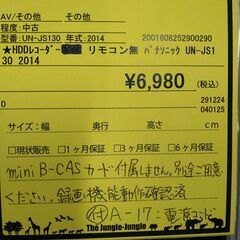 AV/その他 その他
程度:中古
型番:UN-JS130 年式:2014 2001806252900290
★HDDレコーダー リモコン無 パナソニック UN-JS1
30 2014
¥6,980
291224
040125
サイズ:幅 奥行 高さ
□1ヶ月保証 □3ヶ月保証 □6ヶ月保証 □現状販売
miniB-CASカード付属しません。別途ご用意
ください。録画機能動作確認済
付A-17:電源コード
The Jungle-Jungle